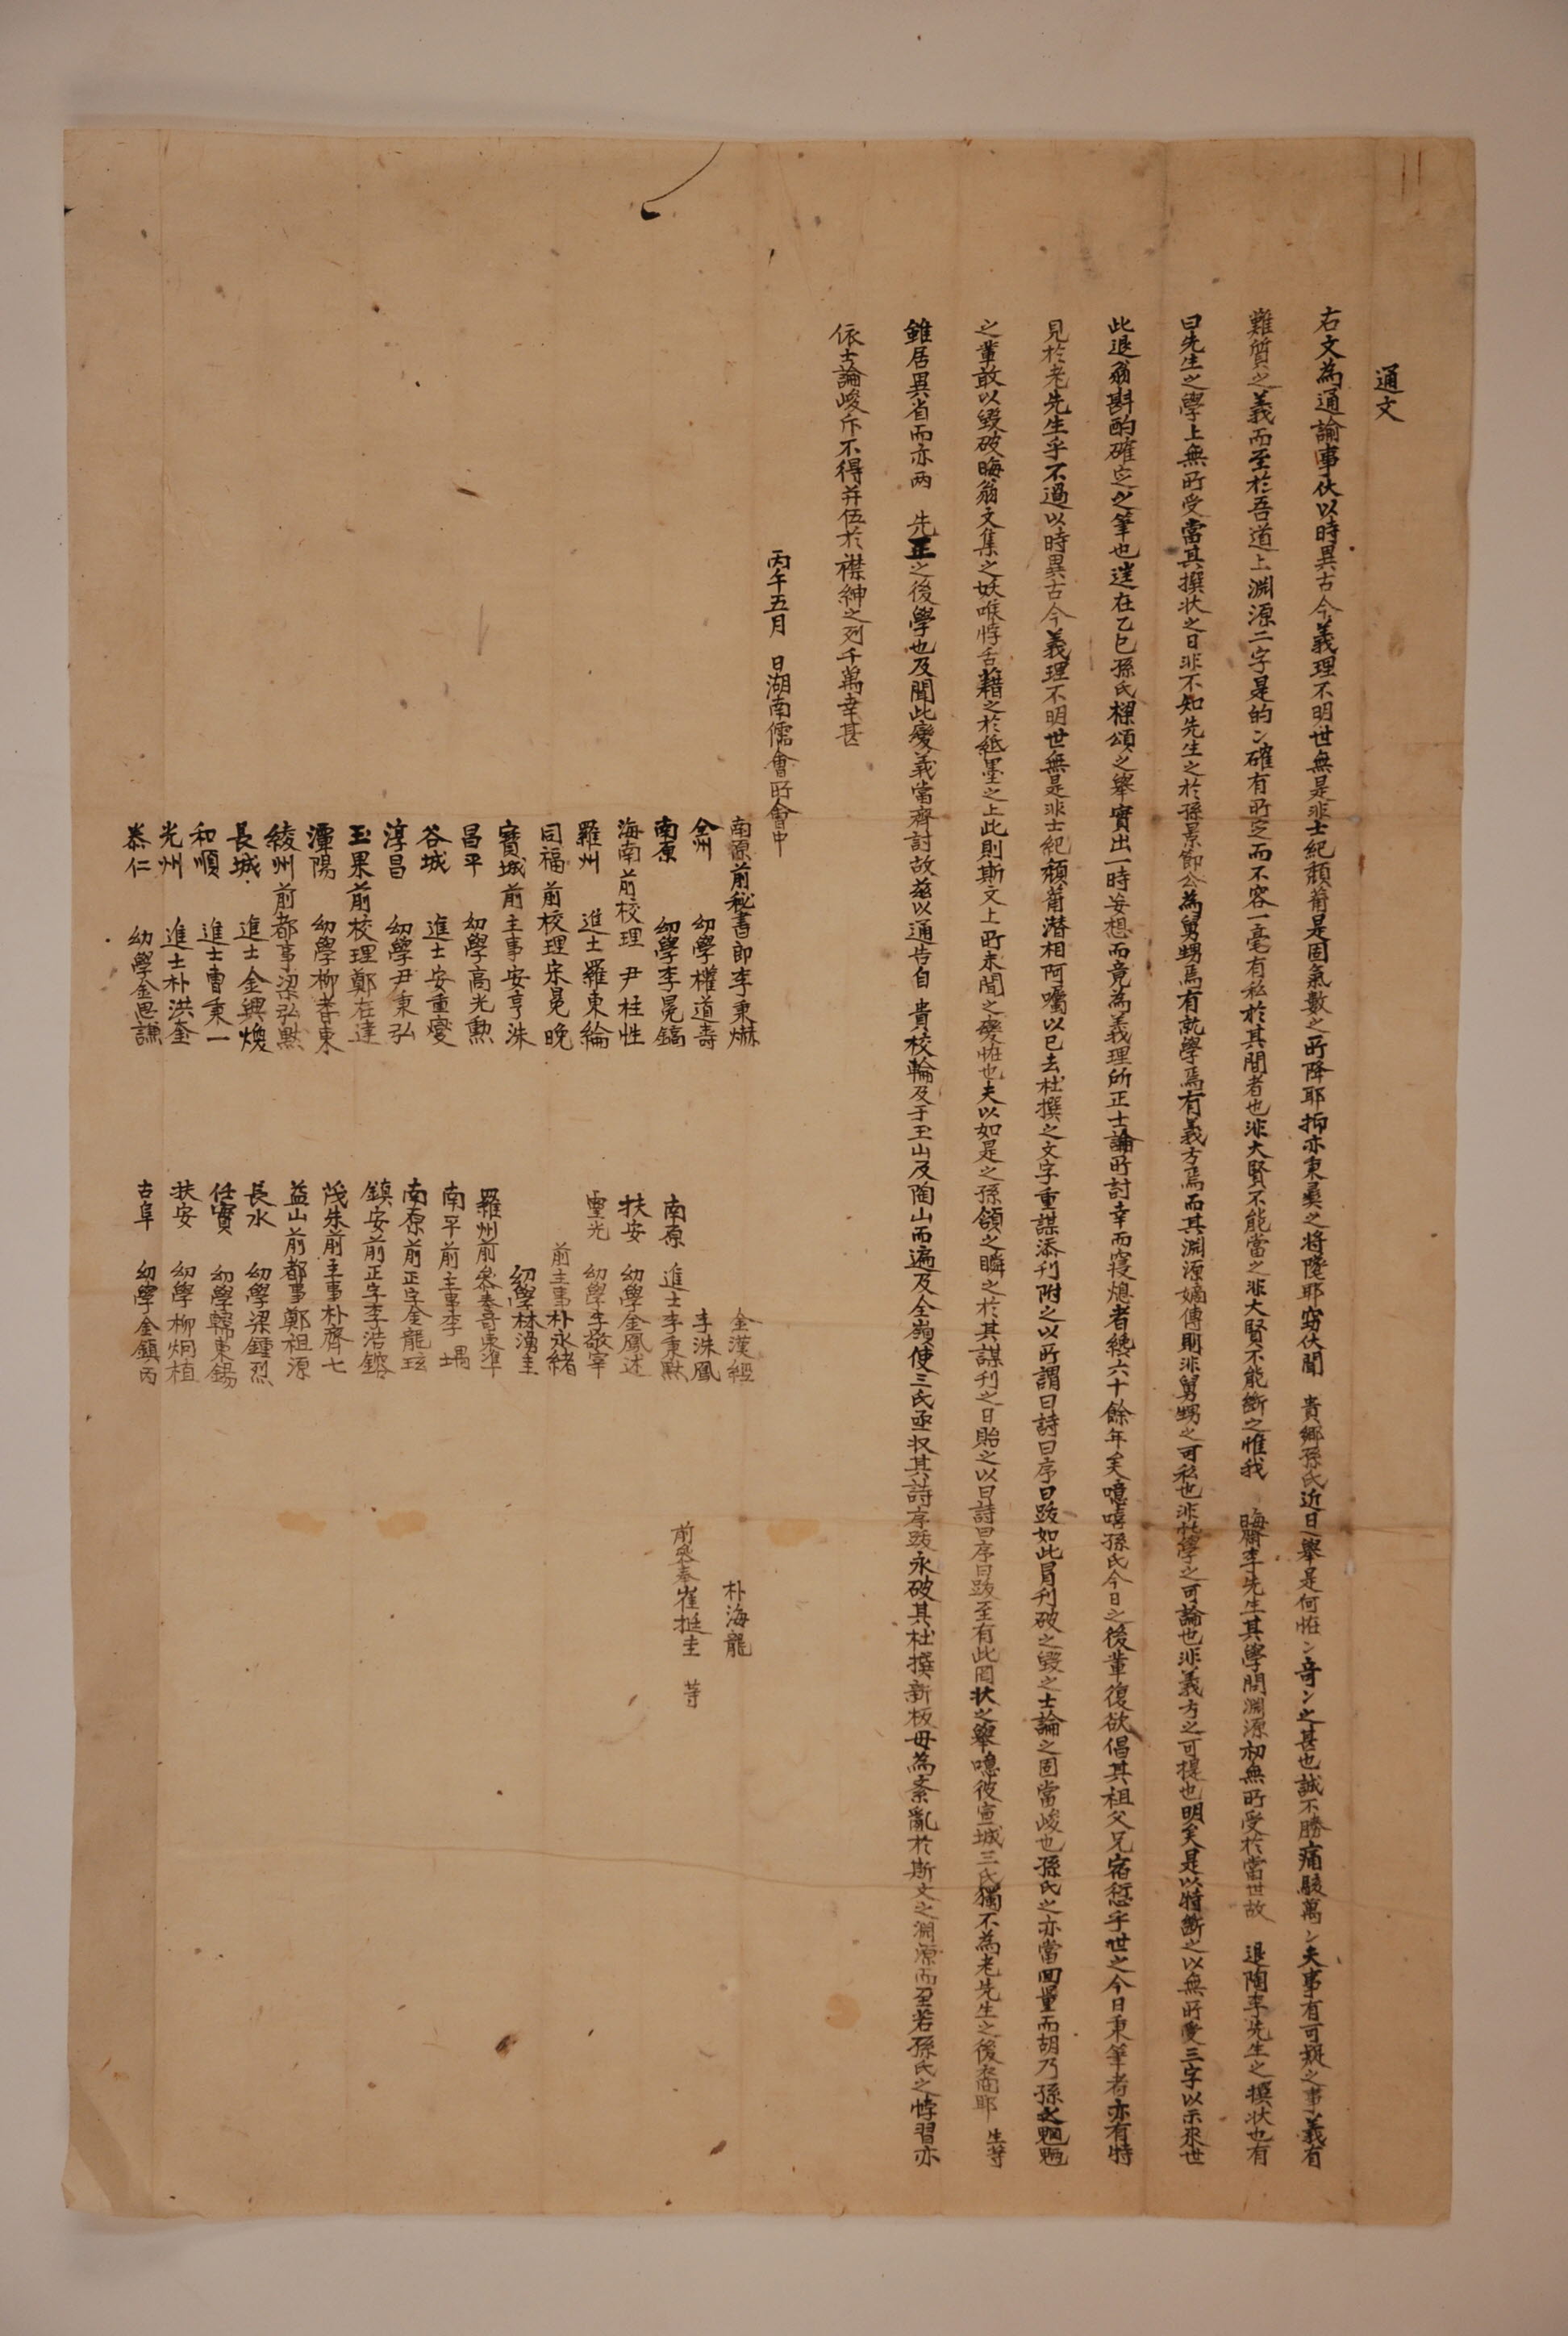 通文
右文為通諭事伏以時異古今義理不明世無是非士紀頹莆是固氣數之所降耶抑亦秉彛之將墜耶窃伏聞 貴鄉孫氏近日之擧是何恠ン奇ン之甚也誠不勝痛駭萬ン夫事有可疑之事義有
難質之義而至於吾道上淵源二字是的ン確有所定而不容一毫有私於其間者也非大賢不能當之非大賢不能斷之惟我 晦齋李先生其學問淵源初無所受於當世故 退陶李先生之撰状也有
曰先生之學上無所受當其撰状之日非不知先生之於孫景節公為舅甥焉有就學焉有義方焉而其淵源嫡傳則非舅甥之可私也非就學之可論也非義方之可提也明矣是以特斷之以無所受三字以示來世
此退翁斟酌確定之筆也逞在乙巳孫氏櫻頌之擧實出一時妄想而竟為義理所正士論所討幸而寢熄者纔六十餘年矣噫嘻孫氏今日之後輩復欲倡其祖父兄宿愆乎世之今日秉筆者亦有特
見於老先生乎不過以時異古今義理不明世無是非士紀頹莆潜相阿囑以已去杜撰之文字重謀添刊附之以所謂曰詩曰序曰跋如此冒刊破之毀之士論之固當峻也孫氏之亦當回量而胡乃孫之魍魎
之輩敢以毀破晦翁文集之妖喉悖舌藉之於紙墨之上此則斯文上所未聞之變恠也夫以如是之孫頷之瞬之於其謀刊之日貽之以曰詩曰序曰跋至有此罔状之擧噫彼宣城三氏獨不為老先生之後裔耶 生等
雖居異省而亦两 先正之後學也及聞此變義當齊討故玆以通告自 貴校輪及于玉山及陶山而遍及全嶺使三氏亟收其詩序跋永破其杜撰新板毋為紊亂於斯文之淵源而至若孫氏之悖習亦
依士論峻斥不得并伍於襟紳之列千萬幸甚
丙午五月 日湖南儒會所會中
南原前秘書郎李秉爀
全州 幼學權道壽
南原 幼學李冕鎬
海南前校理 尹柱性
羅州 進士羅東綸
同福前校理宋晃晚
寶城前主事安亨洙
昌平 幼學高光勲
谷城 進士安重燮
淳昌 幼學尹秉弘
玉果前校理鄭在達
潭陽 幼學柳耆東
綾州前都事梁弘默
長城 進士金興煥
和順 進士曺秉一
光州 進士朴洪奎
泰仁 幼學金思謙
金漢經
李洙鳳
南原 進士李秉默
扶安 幼學金鳳述
靈光 幼學李敬宰
前主事朴永緒
幼學林湧圭
羅州前叅奉奇東準
南平前主事李㙖
南原前正字金龍玹
鎮安前正字李浩鎔
茂朱前主事朴齊七
益山前都事鄭祖源
長水 幼學梁鍾烈
任實 幼學韓東錫
扶安 幼學柳炯植
古阜 幼學金鎮丙
朴海龍
前叅奉崔挺圭 等